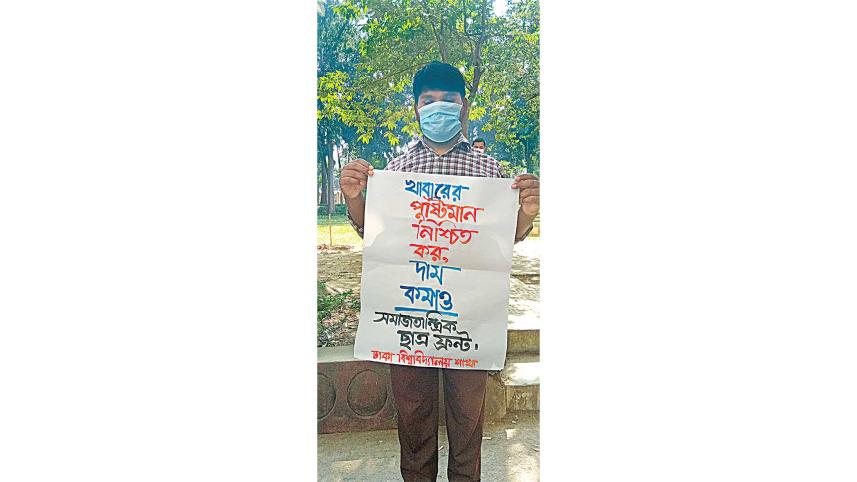 খাবারের
পুষ্টিমান
নিশ্চিত
কর,
দাম
কমাও
সমাজতান্ত্রিক
ছাত্র ফ্রন্ট.
ঢাকা বিশ্ববিদ্যালয় শাখা